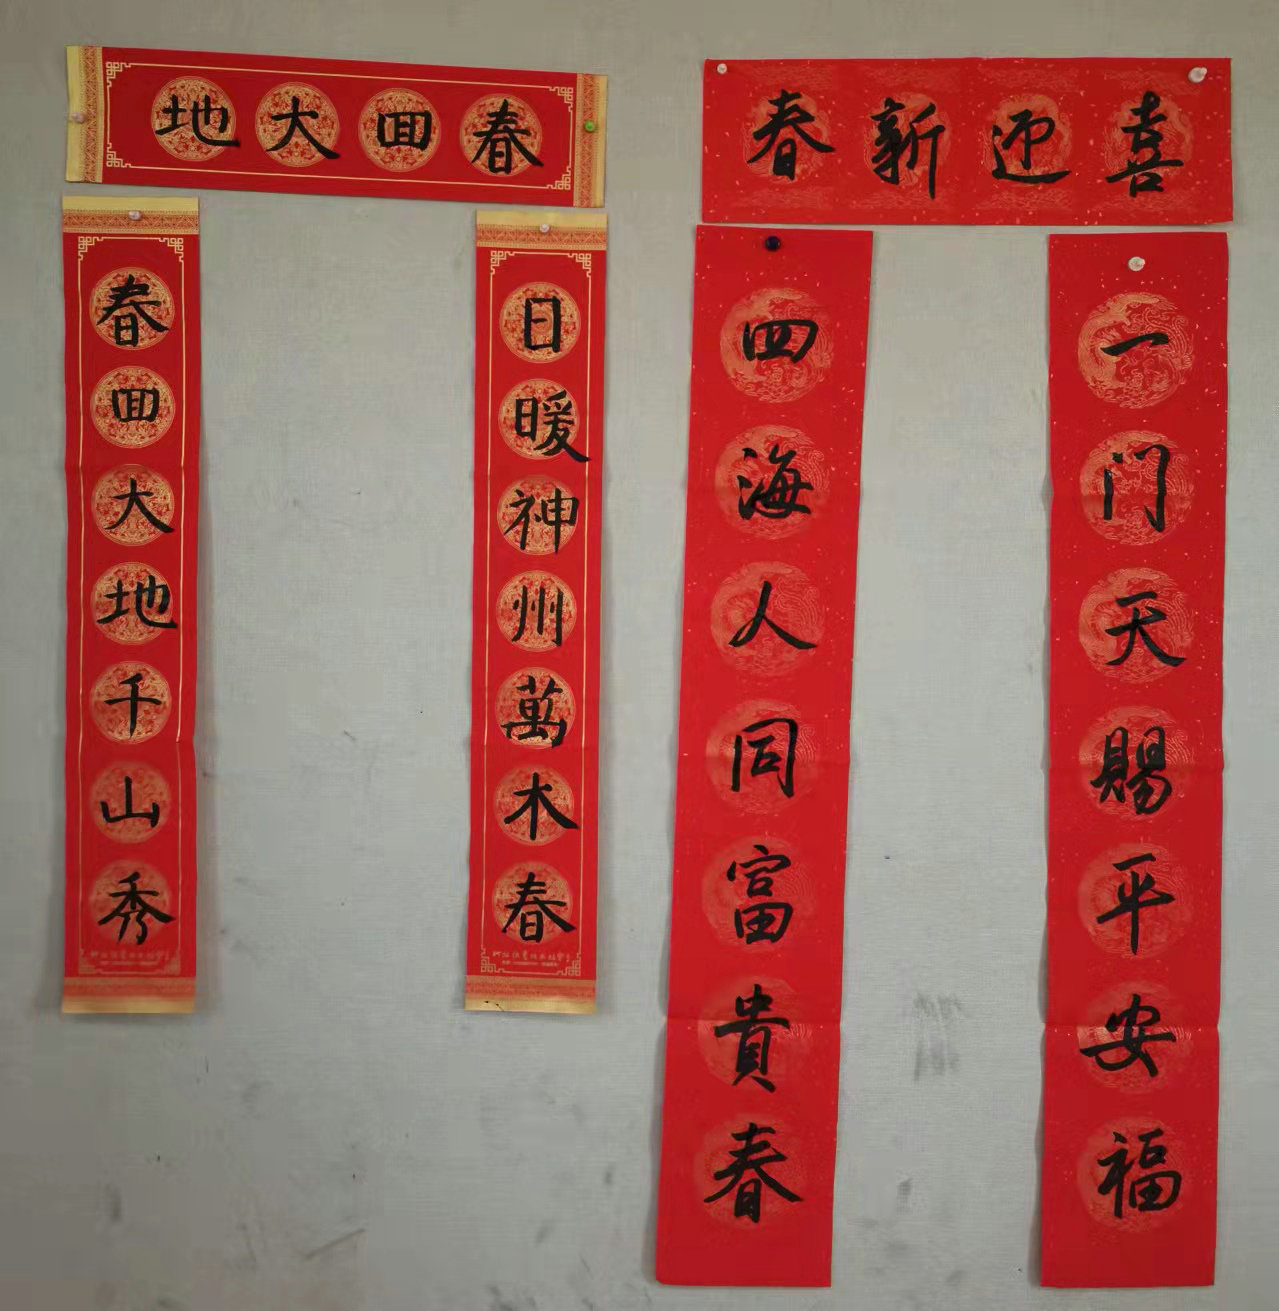 春囬大地
春囬大地千山秀
日暖神州萬木春
喜迎新春
一门天賜平安福
四海人同富貴春